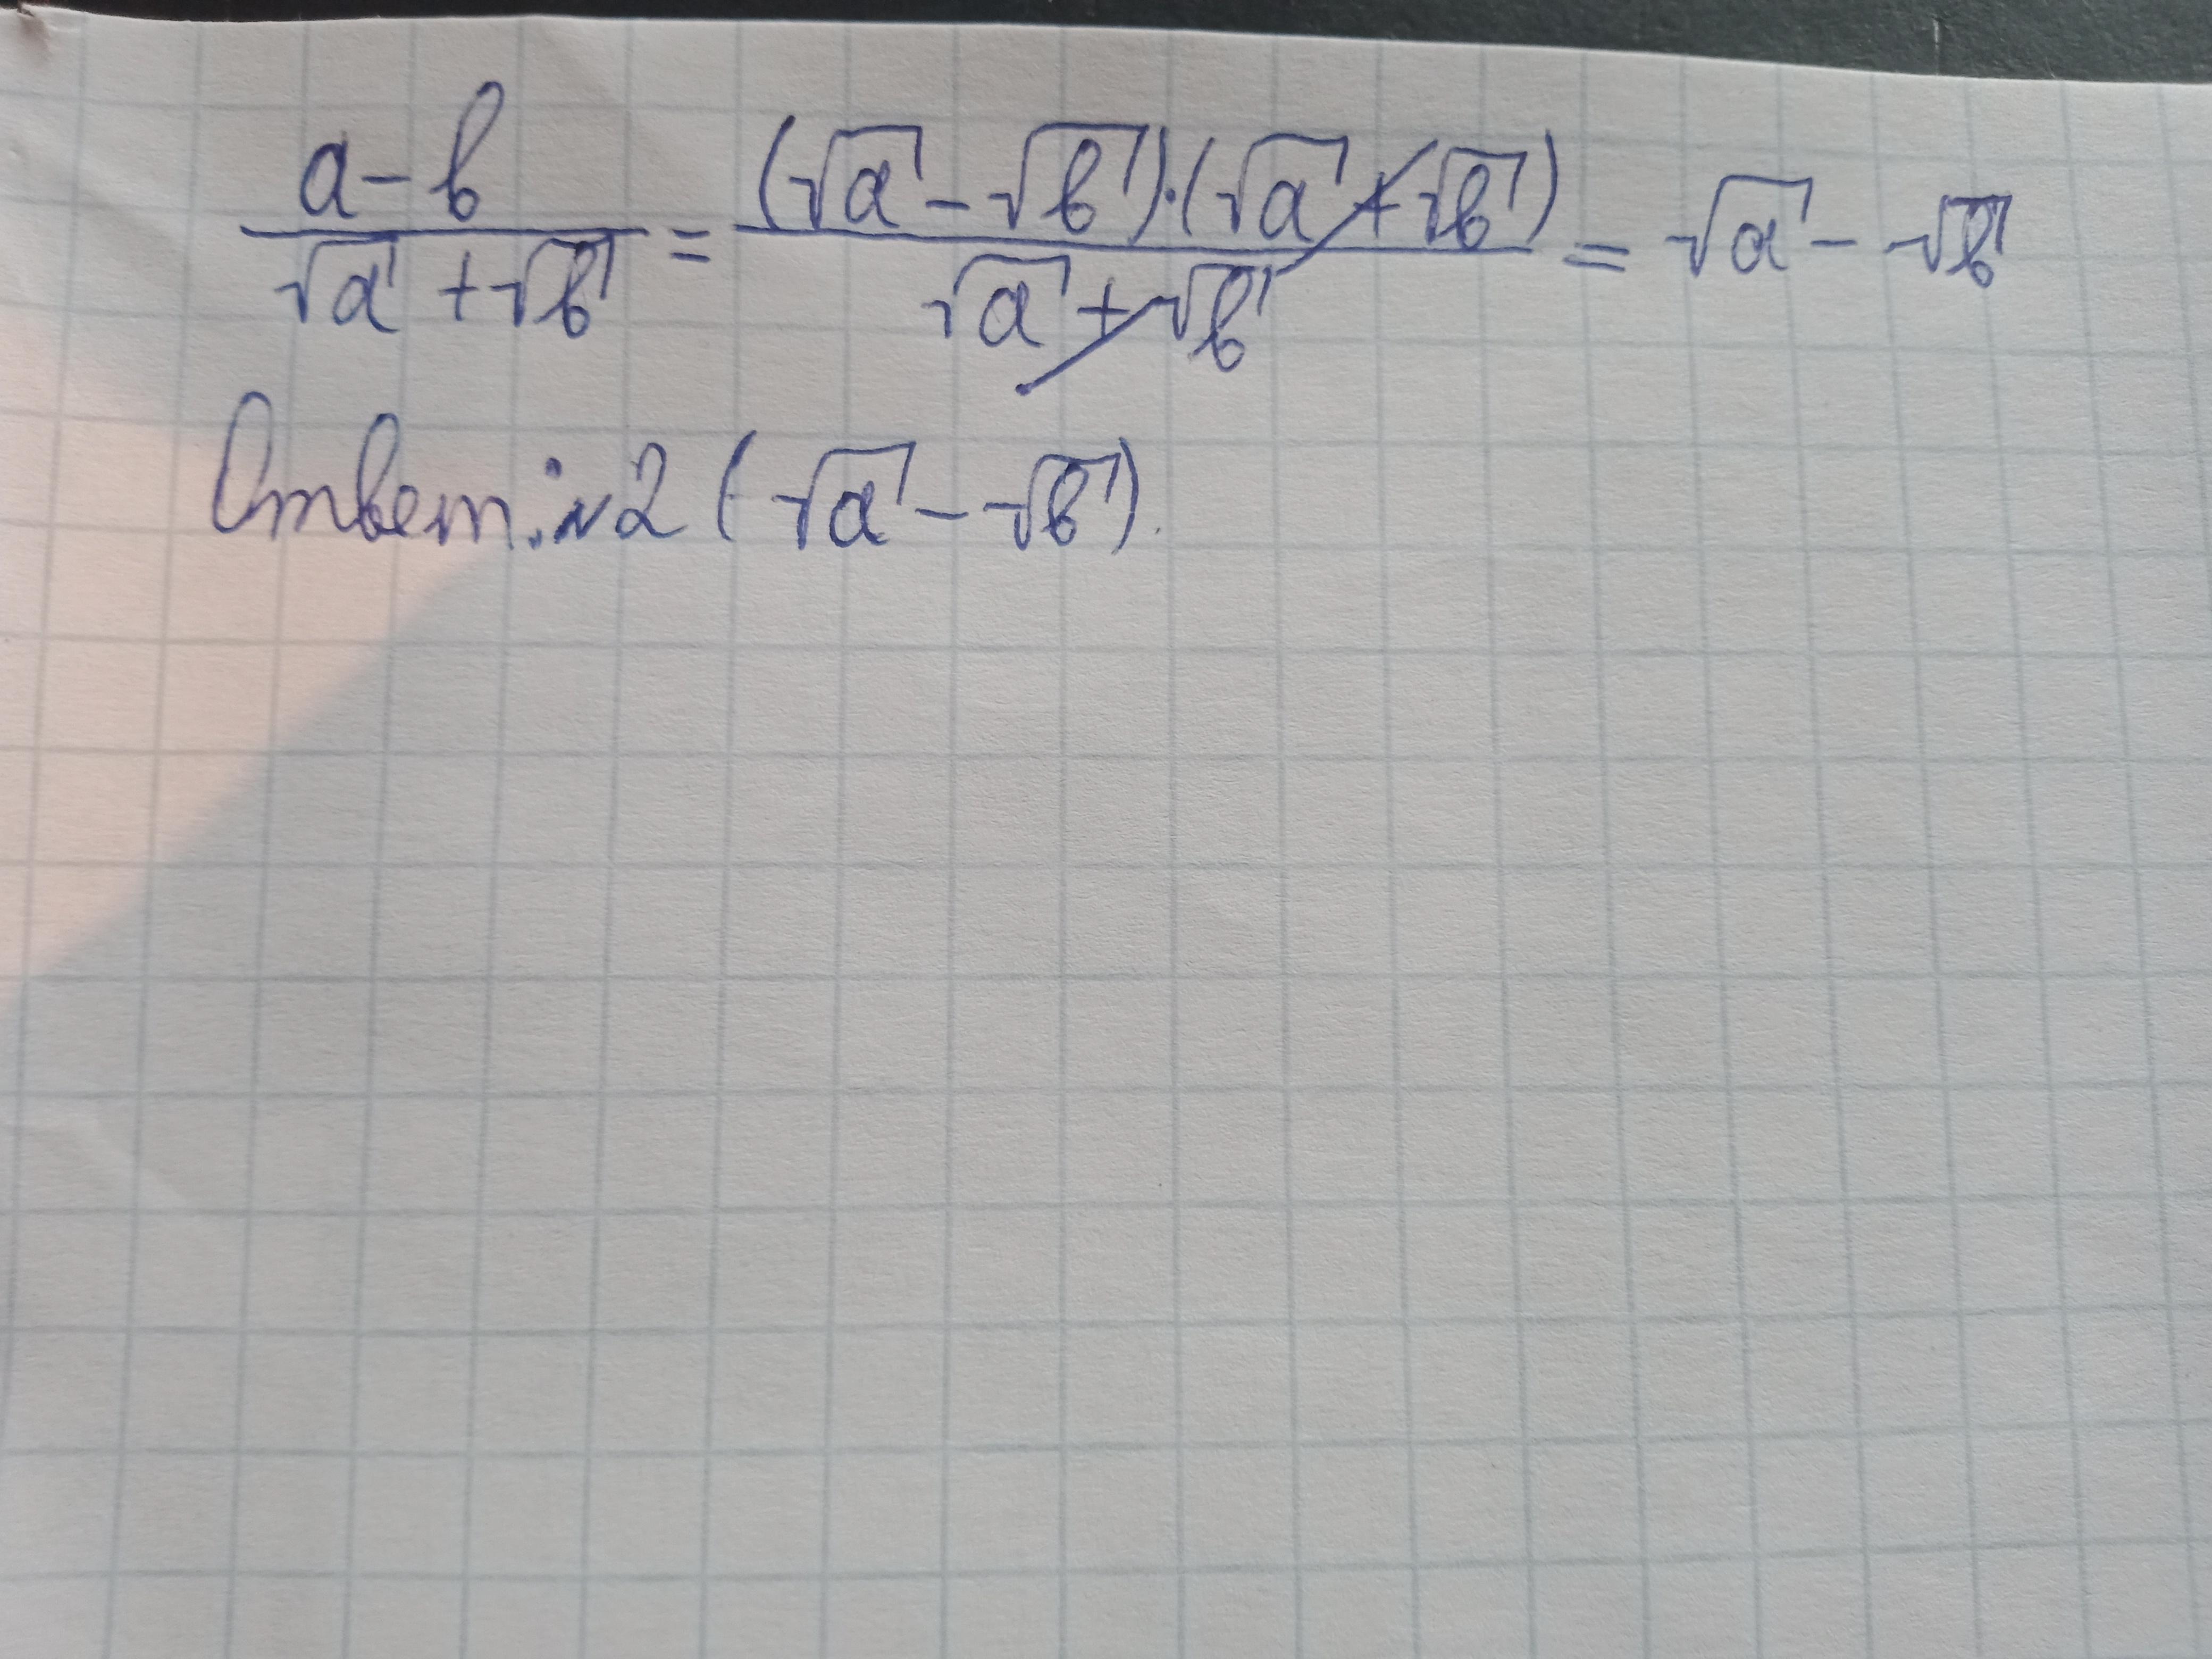 (a-b)/(√a+√b) = ((√a-√b)·(√a+√b))/(√a+√b) = √a-√b
Ответ: №2 (√a-√b).